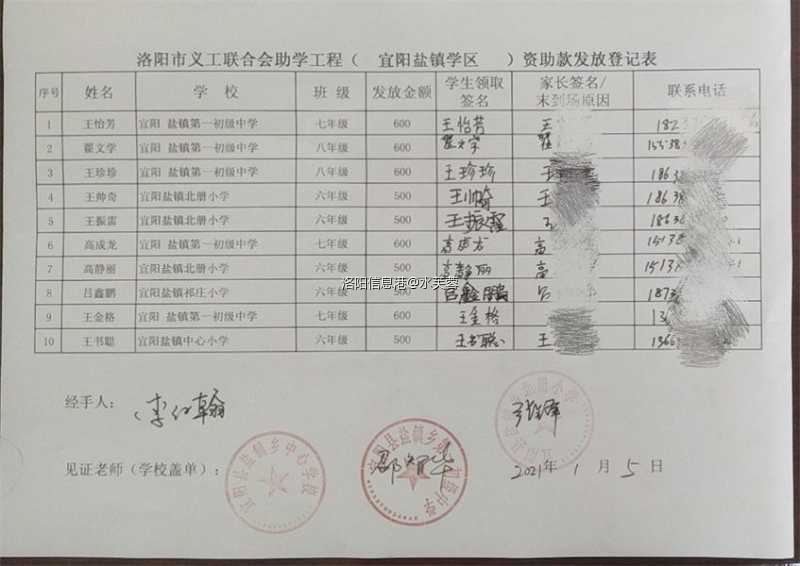 洛阳市义工联合会助学工程（ 宜阳盐镇学区 ）资助款发放登记表
序号 姓名 学 校 班 级 发放金额 学生领取签名 家长签名/未到场原因 联系电话
1 王怡芳 宜阳 盐镇第一初级中学 七年级 600 王怡芳 王 182
2 翟文学 宜阳 盐镇第一初级中学 八年级 600 翟文学 翟 15538
3 王珍珍 宜阳 盐镇第一初级中学 八年级 600 王珍珍 王 18638
4 王帅奇 宜阳盐镇北册小学 六年级 500 王帅奇 王 18638
5 王振雷 宜阳盐镇北册小学 六年级 500 王振 18638
6 高成龙 宜阳 盐镇第一初级中学 七年级 600 高成龙 高 15138
7 高静丽 宜阳盐镇北册小学 六年级 500 高静丽 高 15138
洛阳信息港@水芙蓉
8 吕鑫鹏 宜阳盐镇祁庄小学 六年级 500 吕鑫鹏 吕 1873
9 王金格 宜阳 盐镇第一初级中学 七年级 600 王金格 13
10 王书聪 宜阳盐镇中心小学 六年级 500 王书聪 王 1366
经手人： 李 翰
见证老师（学校盖单）： 邵智华 2021年 1 月 5 日
宜阳县盐镇乡中心学校
宜阳县盐镇乡第一初级中学